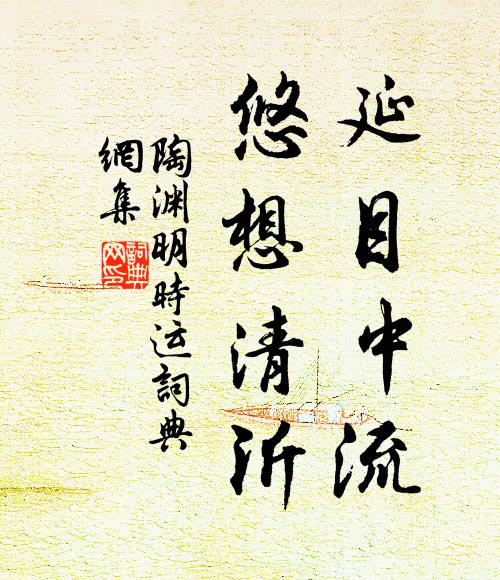 延目中流
悠想清沂
陶渊明時运詞典
網集
詞典
网印